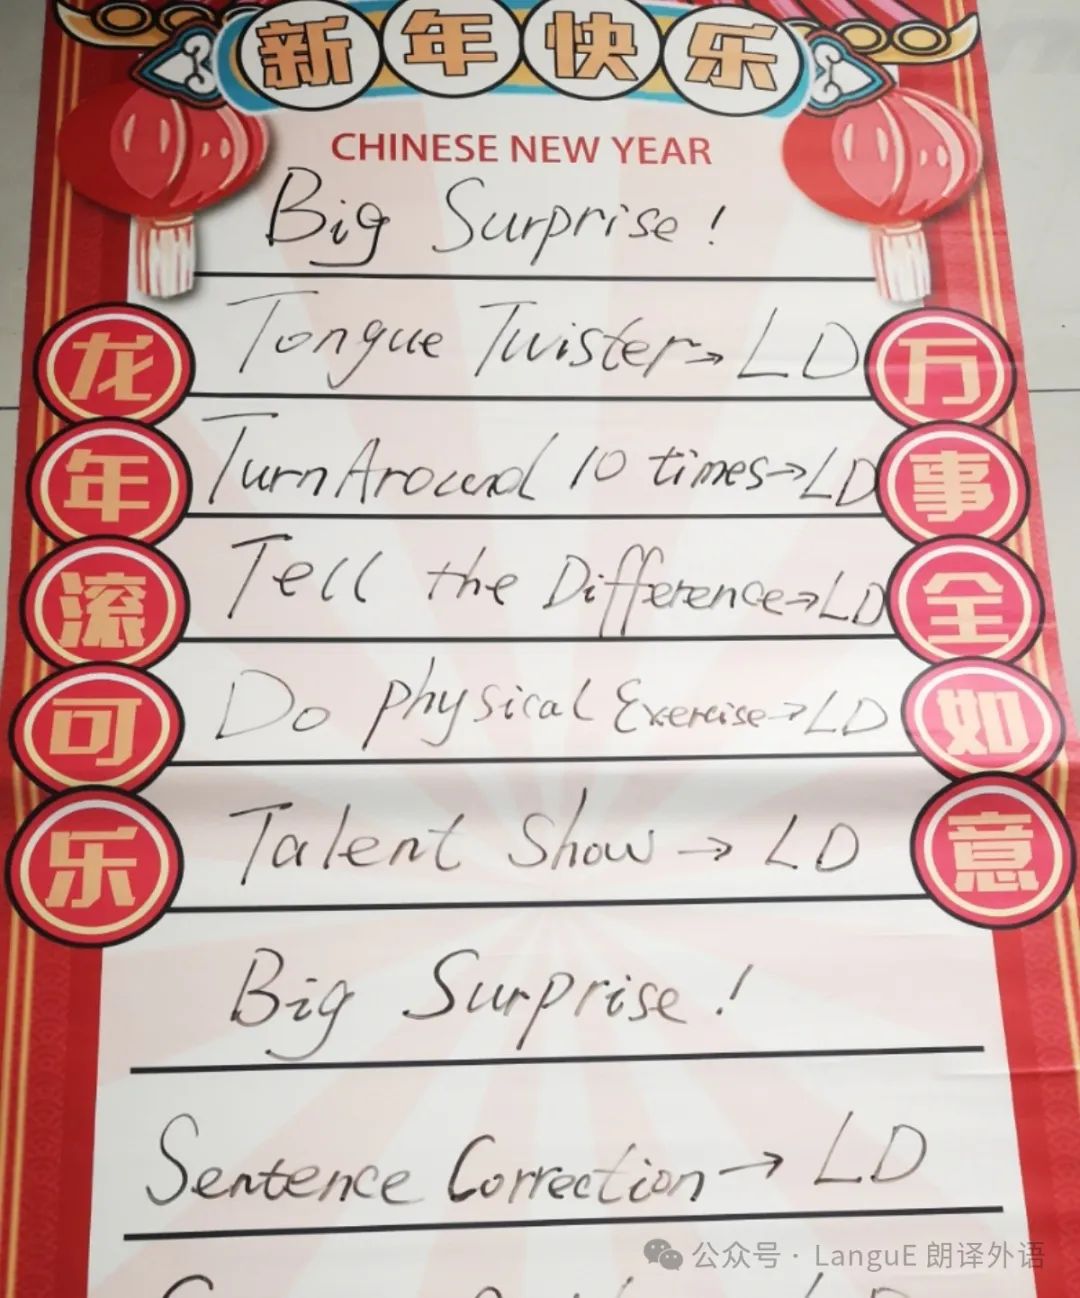 新年快乐
CHINESE NEW YEAR
Big Surprise!
Tongue Twister→LD
Turn Around 10 times→LD
Tell the Difference→LD
Do physical Exercise→LD
Talent Show→LD
龙年滚可乐
万事全如意
Big Surprise!
Sentence Correction→LD
公众号·LanguE 朗译外语